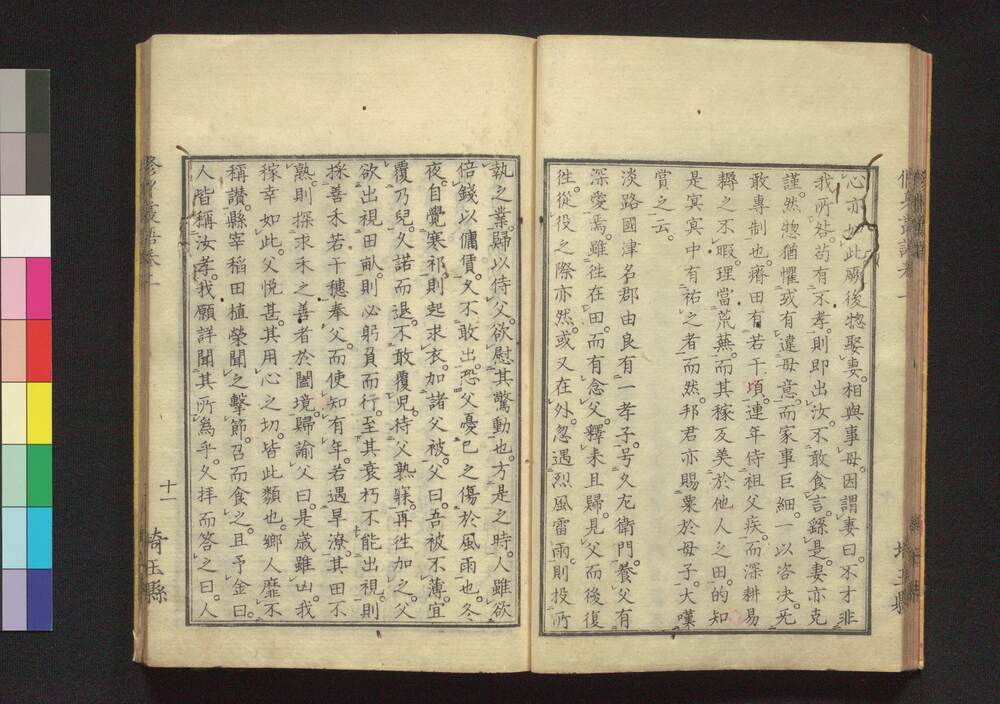 心亦如此厥後惣娶妻。相與事母。因謂妻曰。不才非
我所咎。苟有不孝。則即出汝。不敢食言。繇是。妻亦克
謹。然惣猶懼或有違母意。而家事巨細。一以咨决。旡
敢專制也。瘠田有若干頃。連年侍祖父疾。而深耕易
耨之不暇。理當荒蕪。而其稼反美於他人之田。的知
是冥冥中有祐之者而然。邦君亦賜粟於母子。大嘆
賞之云。
淡路國津名郡由良有一孝子。号久左衛門。養父有
深愛焉。雖徃在田。而有念父。釋耒且歸。見父而後復
徃。從役之際亦然。或又在外。忽遇烈風雷雨。則投所
執之業。歸以侍父。欲慰其驚動也。方是之時。人雖欲
倍錢以傭賃。久不敢出。恐父憂己之傷於風雨也。冬
夜。自覺寒祁。則起求衣。加諸父被。父曰。吾被不薄。宜
覆乃兒。久諾而退。不敢覆児。待父熟寐。再徃加之。父
欲出視田畝。則必躬負而行。至其衰朽不能出視。則
採善禾若干穗奉父。而使知有年。若遇旱潦。其田不
熟。則探求禾之善者於闔境。歸諭父曰。是歳雖凶。我
稼幸如此。父悦甚。其用心之切。皆此類也。鄉人靡不
稱讃。縣宰稻田植榮聞之擊節。召而食之。且予金曰。
人皆稱汝孝。我願詳聞其所爲乎。久拜而答之曰。人
十一
埼玉縣
埼玉縣